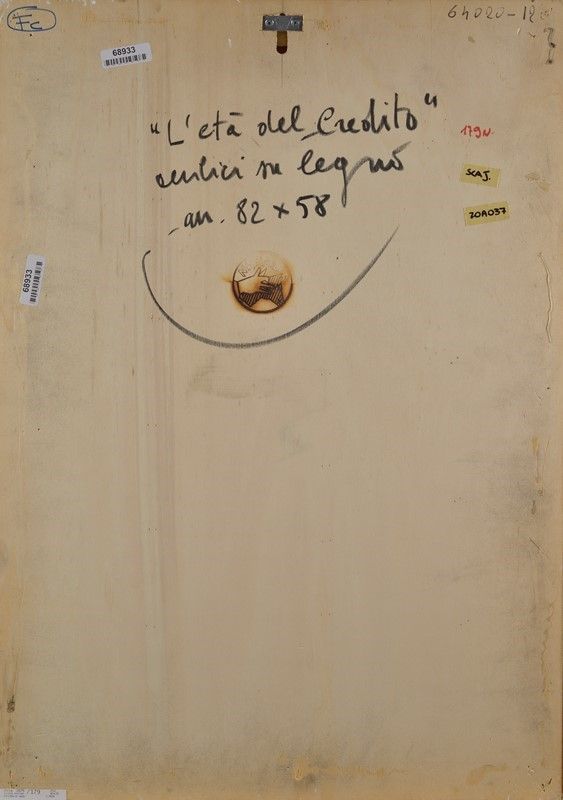 Fc
68933
64020-12
"L'età del Credito"
acrilici su legno
cm. 82 x 58
179N.
SCAJ.
70A037
68933